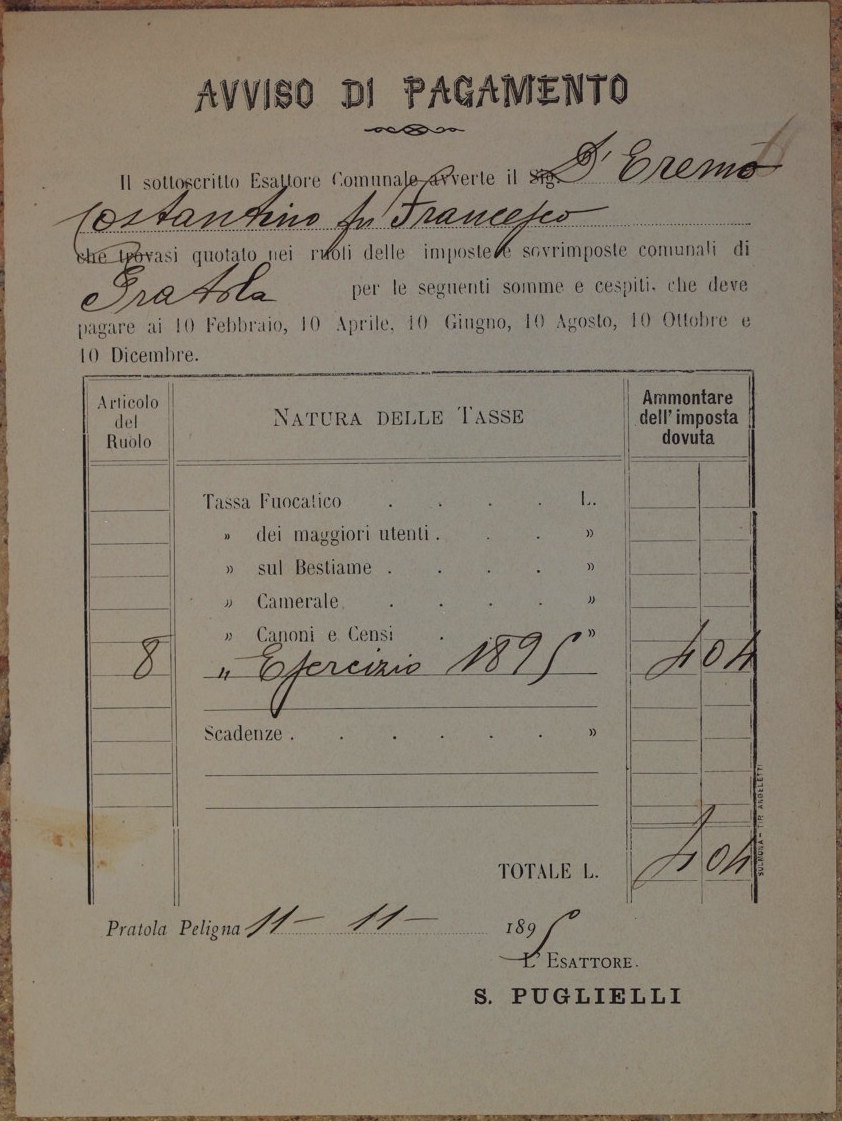 AVVISO DI PAGAMENTO
Il sottoscritto Esattore Comunale avverte il Sig. D'Eremo
Costantino fu Francesco
che trovasi quotato nei ruoli delle imposte e sovrimposte comunali di
Pratola per le seguenti somme e cespiti, che deve
pagare ai 10 Febbraio, 10 Aprile, 10 Giugno, 10 Agosto, 10 Ottobre e
10 Dicembre.
Articolo del Ruolo
NATURA DELLE TASSE
Ammontare dell'imposta dovuta
Tassa Fuocatico . . . . L.
» dei maggiori utenti . . . »
» sul Bestiame . . . »
» Camerale . . . . »
» Canoni e Censi . . »
8 » Esercizio 1895 4 04
Scadenze . . . . . . »
TOTALE L. 4 04
SULMONA – TIP. ANGELETTI
Pratola Peligna 11 – 11 – 1895
L'ESATTORE.
S. PUGLIELLI